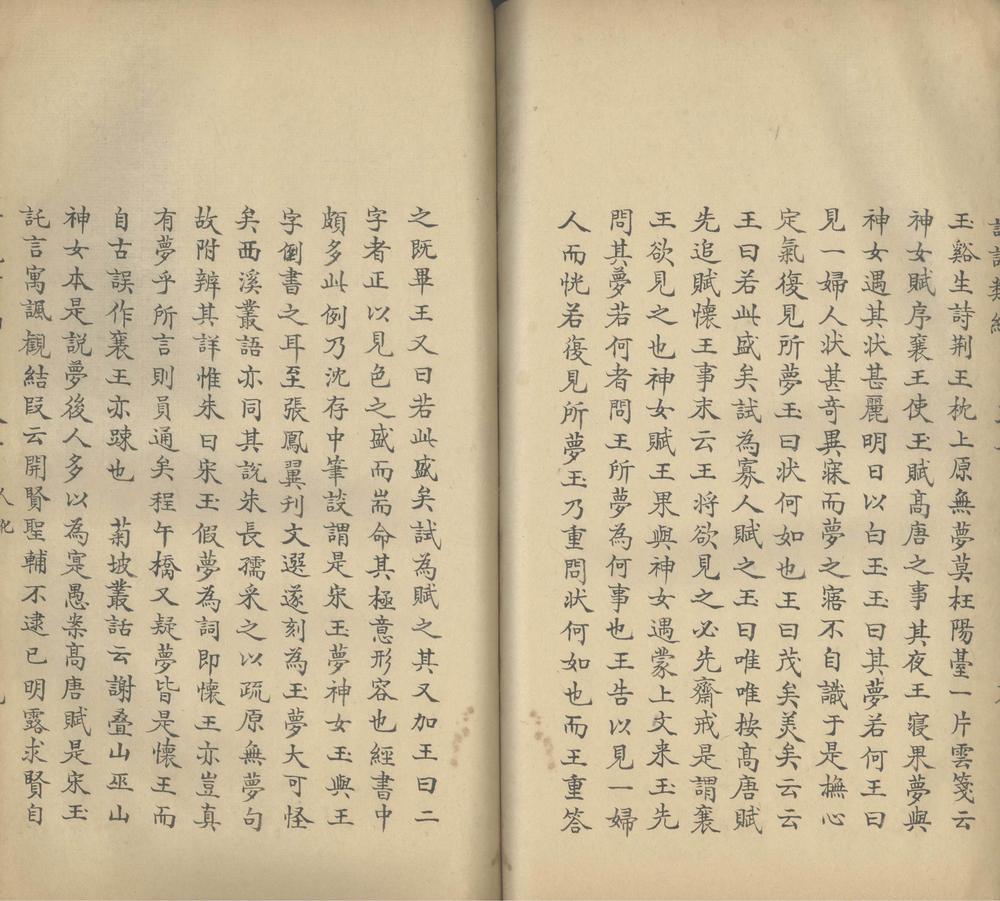 玉谿生詩荆王枕上原無夢莫枉陽臺一片雲箋云
神女賦序襄王使玉賦髙唐之事其夜王寢果夢與
神女遇其狀甚麗明日以白玉玉曰其夢若何王曰
見一婦人狀甚竒異寐而夢之寤不自識于是撫心
定氣復見所夢玉曰狀何如也王曰茂矣美矣云云
王曰若此盛矣試為寡人賦之玉曰唯唯按髙唐賦
先追賦懷王事末云王將欲見之必先齋戒是謂襄
王欲見之也神女賦王果與神女遇蒙上文来玉先
問其夢若何者問王所夢為何事也王告以見一婦
人而恍若復見所夢玉乃重問狀何如也而王重答
之既畢王又曰若此盛矣試為賦之其又加王曰二
字者正以見色之盛而耑命其極意形容也經書中
頗多此例乃沈存中筆談謂是宋玉夢神女玉與王
字倒書之耳至張鳳翼刊文選遂刻為玉夢大可怪
矣西溪叢語亦同其説朱長孺采之以疏原無夢句
故附辨其詳惟朱曰宋玉假夢為詞即懷王亦豈真
有夢乎所言則員通矣程午橋又疑夢皆是懷王而
自古誤作襄王亦踈也　菊坡叢話云謝叠山巫山
神女本是説夢後人多以為寔愚案髙唐賦是宋玉
託言寓諷觀結叚云開賢聖輔不逮已明露求賢自